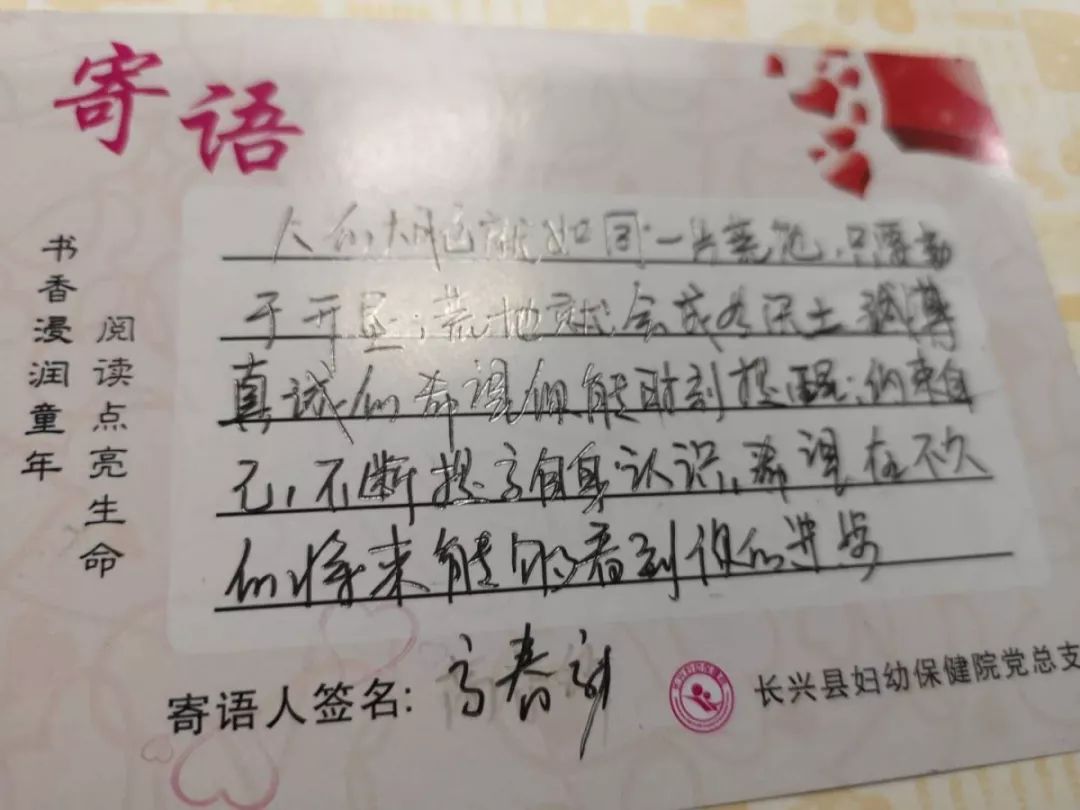 寄语
书香浸润童年
阅读点亮生命
人的大脑就如同一片荒地，只要勤
于开垦，荒地就会成为沃土
真诚的希望你能时刻提醒自
己，不断提高自身认识，希望在不久
的将来能够看到你的进步
寄语人签名：高春
长兴县妇幼保健院党总支